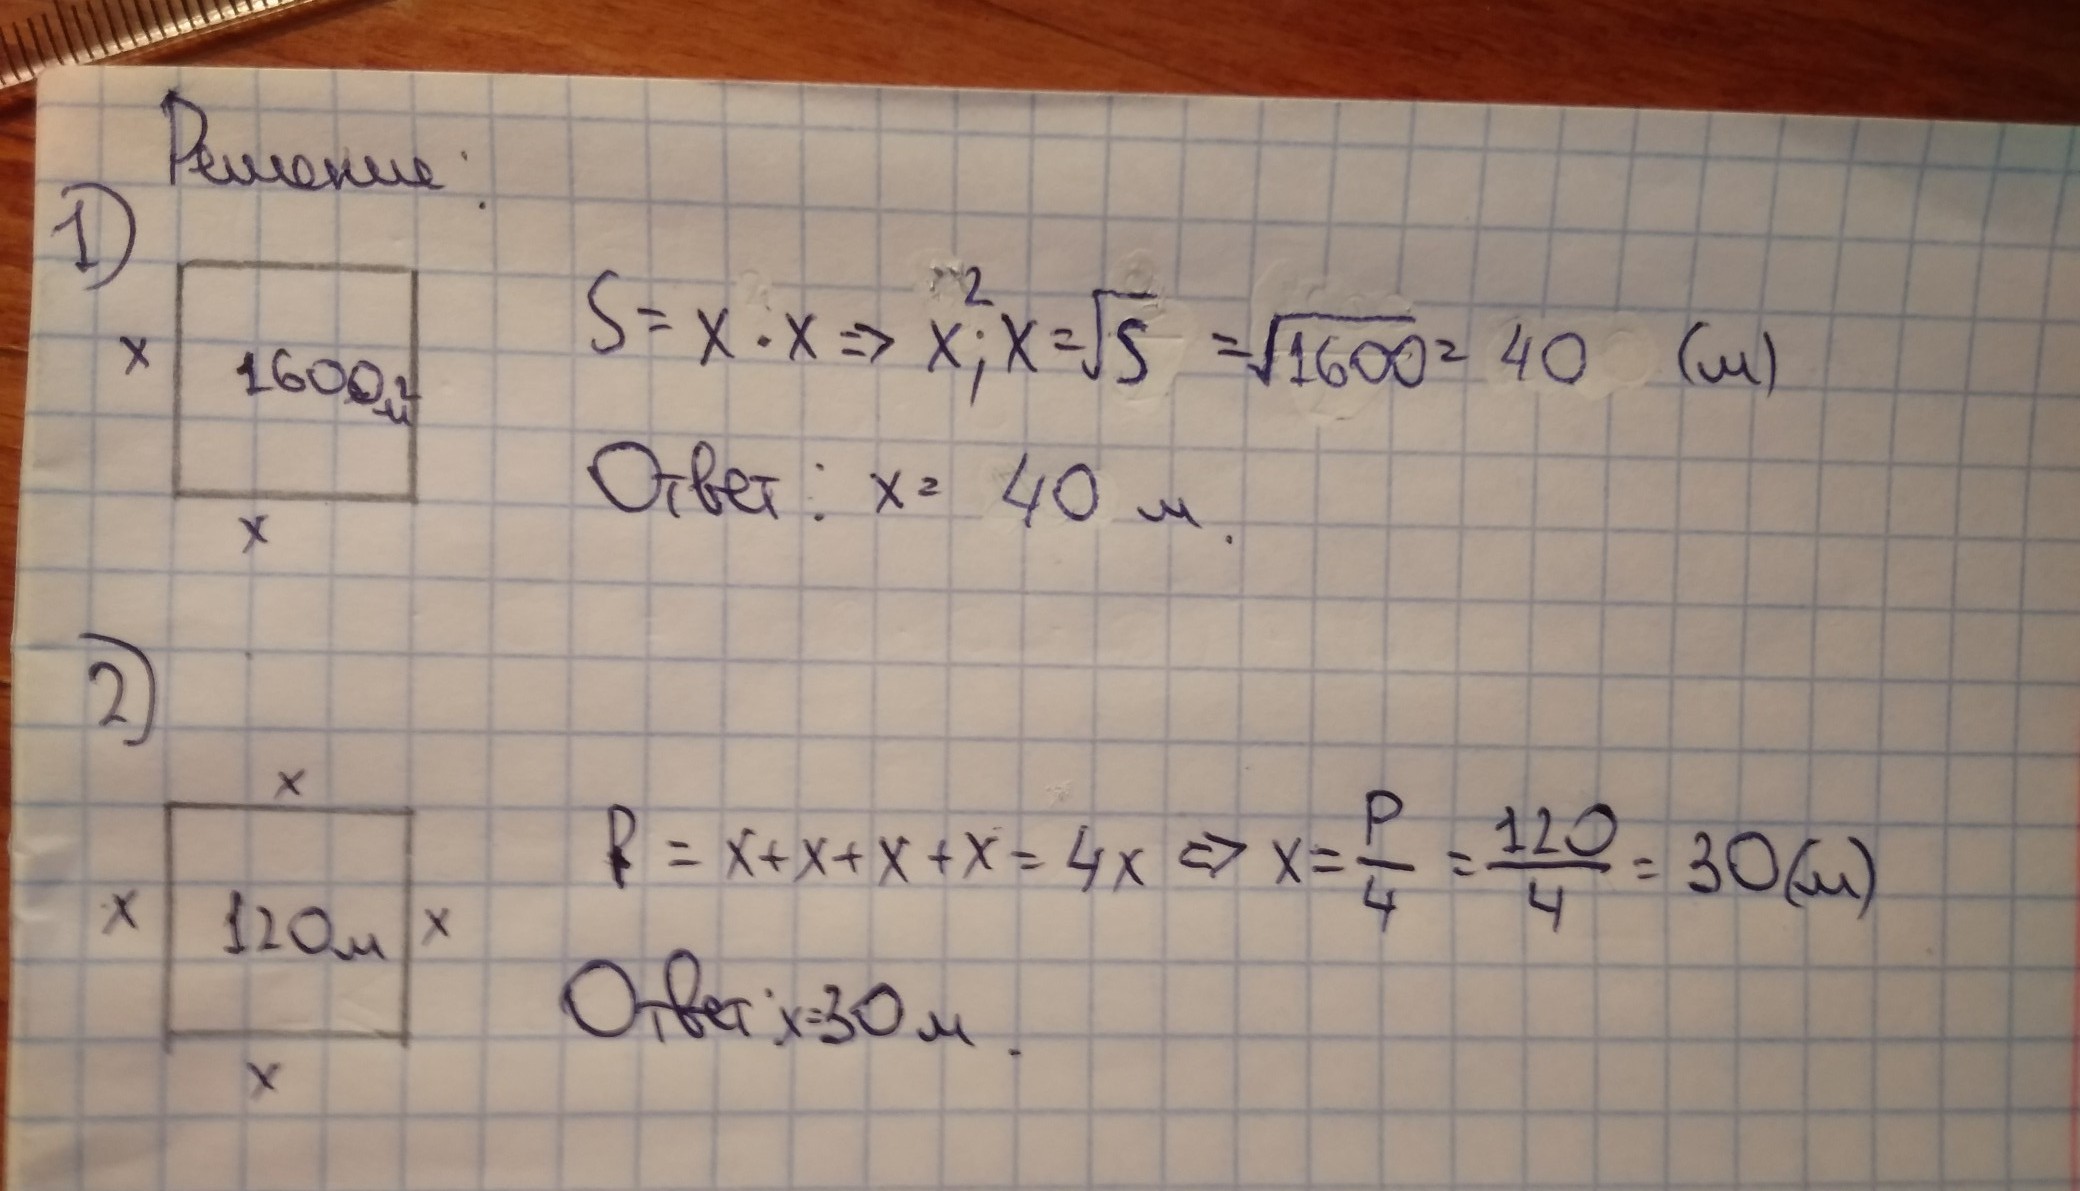 Решение:
1)
x
1600м²
x
S = x · x ⇒ x²; x = √S = √1600 = 40 (м)
Ответ: x = 40 м.
2)
x
x
120м
x
x
P = x + x + x + x = 4x ⇒ x = P/4 = 120/4 = 30 (м)
Ответ: x=30 м.